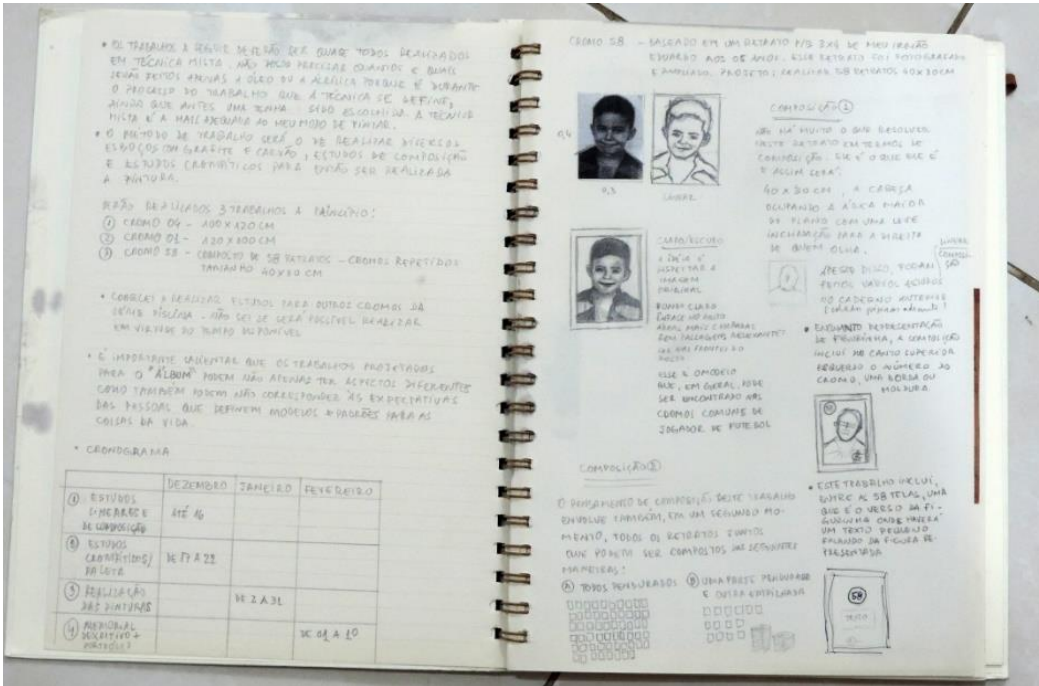 • OS TRABALHOS A SEGUIR DEVERÃO SER QUASE TODOS REALIZADOS
EM TÉCNICA MISTA. NÃO POSSO PRECISAR QUANTOS E QUAIS
SERÃO FEITOS APENAS A ÓLEO OU A ACRÍLICA PORQUE É DURANTE
O PROCESSO DO TRABALHO QUE A TÉCNICA SE DEFINE,
AINDA QUE ANTES UMA TENHA SIDO ESCOLHIDA. A TÉCNICA
MISTA É A MAIS ADEQUADA AO MEU MODO DE PINTAR.
• O MÉTODO DE TRABALHO SERÁ O DE REALIZAR DIVERSOS
ESBOÇOS EM GRAFITE E CARVÃO, ESTUDOS DE COMPOSIÇÃO
E ESTUDOS CROMÁTICOS PARA ENTÃO SER REALIZADA
A PINTURA.
SERÃO REALIZADOS 3 TRABALHOS A PRINCÍPIO:
① CROMO 04 - 100 X 120 CM
② CROMO 01 - 120 X 100 CM
③ CROMO 58 - COMPOSTO DE 58 RETRATOS - CROMOS REPETIDOS
TAMANHO 40X30 CM
• COMECEI A REALIZAR ESTUDOS PARA OUTROS CROMOS DA
SÉRIE PISCINA - NÃO SEI SE SERÁ POSSÍVEL REALIZAR
EM VIRTUDE DO TEMPO DISPONÍVEL
• É IMPORTANTE SALIENTAR QUE OS TRABALHOS PROJETADOS
PARA O "ÁLBUM" PODEM NÃO APENAS TER ASPECTOS DIFERENTES
COMO TAMBÉM PODEM NÃO CORRESPONDER ÀS EXPECTATIVAS
DAS PESSOAS QUE DEFINEM MODELOS E PADRÕES PARA AS
COISAS DA VIDA.
• CRONOGRAMA
DEZEMBRO JANEIRO FEVEREIRO
① ESTUDOS
LINEARES E
DE COMPOSIÇÃO
ATÉ 16
② ESTUDOS
CROMÁTICOS/
PALETA
DE 17 A 22
③ REALIZAÇÃO
DAS PINTURAS
DE 2 A 31
④ MEMORIAL
DESCRITIVO +
PORTFÓLIO
DE 01 A 10
CROMO 58 - BASEADO EM UM RETRATO P/B 3X4 DE MEU IRMÃO
EDUARDO AOS 05 ANOS. ESSE RETRATO FOI FOTOGRAFADO
E AMPLIADO. PROJETO: REALIZAR 58 RETRATOS 40X30CM
0,4
0,3
LINEAR
COMPOSIÇÃO ①
NÃO HÁ MUITO O QUE RESOLVER
NESTE RETRATO EM TERMOS DE
COMPOSIÇÃO. ELE É O QUE ELE É
E ASSIM SERÁ.
40 X 30 CM, A CABEÇA
OCUPANDO A ÁREA MAIOR
DO PLANO COM UMA LEVE
INCLINAÇÃO PARA A DIREITA
DE QUEM OLHA.
CLARO/ESCURO
A IDÉIA É
RESPEITAR A
IMAGEM
ORIGINAL
FUNDO CLARO
ROSTO
ELE É O MODELO
QUE, EM GERAL, PODE
SER ENCONTRADO NOS
CROMOS COMUNS DE
JOGADOR DE FUTEBOL
APESAR DISSO, FORAM
FEITOS VÁRIOS ESTUDOS
NO CADERNO ANTERIOR
• ENQUANTO REPRESENTAÇÃO
DE FIGURINHA, A COMPOSIÇÃO
INCLUI NO CANTO SUPERIOR
ESQUERDO O NÚMERO DO
CROMO, UMA BORDA OU
MOLDURA
58
COMPOSIÇÃO ②
O PENSAMENTO DE COMPOSIÇÃO DESTE TRABALHO
ENVOLVE TAMBÉM, EM UM SEGUNDO MO-
MENTO, TODOS OS RETRATOS JUNTOS
QUE PODEM SER COMPOSTOS DAS SEGUINTES
MANEIRAS:
Ⓐ TODOS PENDURADOS Ⓑ UMA PARTE PENDURADA
E OUTRA EMPILHADA
• ESTE TRABALHO INCLUI,
ENTRE AS 58 TELAS, UMA
QUE É O VERSO DA FI-
GURINHA ONDE HAVERÁ
UM TEXTO PEQUENO
FALANDO DA FIGURA RE-
PRESENTADA
58
TEXTO